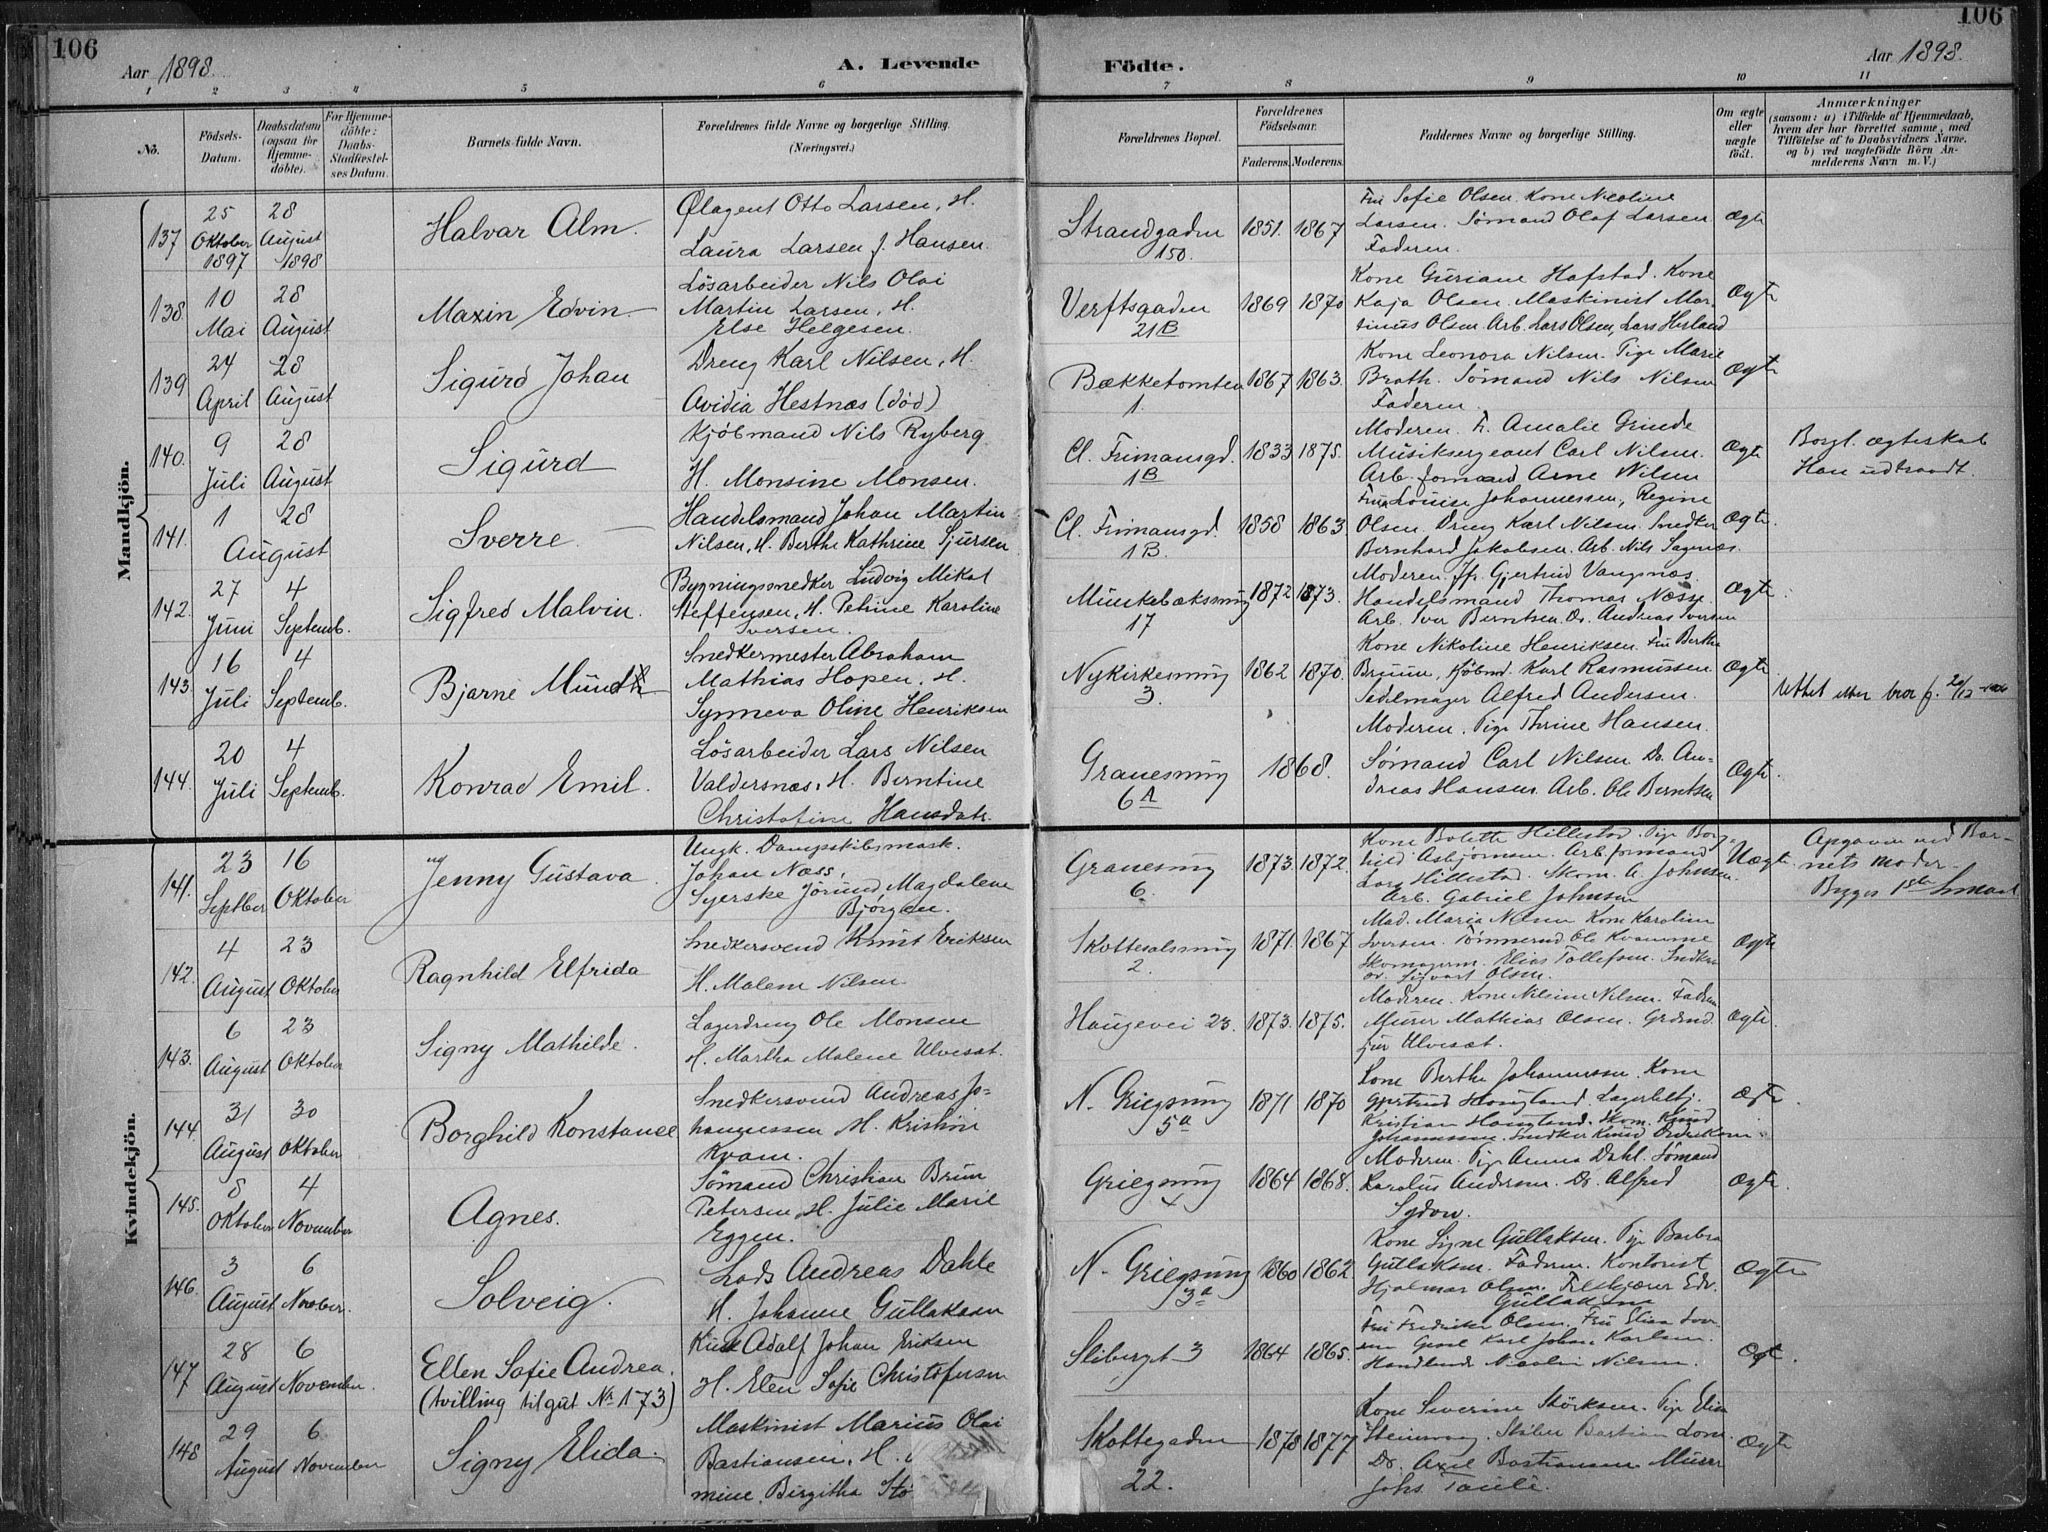 106
106
Aar 1898.
A. Levende
Födte.
Aar 1898.
1 2 3 4 5 6 7 8 9 10 11
No.
Födsels-Datum.
Daabsdatum (ogsaa for Hjemmedöbte).
For Hjemmedöbte: Daabs-Stadfæstelses Datum.
Barnets fulde Navn.
Forældrenes fulde Navne og borgerlige Stilling. (Næringsvei.)
Forældrenes Bopæl.
Forældrenes Födselsaar.
Faderens. Moderens.
Faddernes Navne og borgerlige Stilling.
Om ægte eller uægte födt.
Anmærkninger
(saasom: a) i Tilfælde af Hjemmedaab, hvem der har forrettet samme, med Tilföielse af to Daabsvidners Navne, og b) ved uægtefödte Börn Anmelderens Navn m. V.)
Mandkjön.
137 25 Oktober 1897 28 August 1898 Halvar Alm.
Ølagent Otto Larsen, H.
Laura Larsen f. Hansen.
Strandgaden 150. 1851. 1867
Fru Sofie Olsen. Kone Nicoline
Larsen. Sømand Olaf Larsen
Faderen.
Ægte
138. 10 Mai 28 August Maxin Edvin
Lösarbeider Nils Olai
Martin Larsen, H.
Else Helgesen.
Verftsgaden 21B 1869 1870
Kone Guriane Hafstad. Kone
Kaja Olsen. Maskinist Mar-
tinus Olsen. Arb. Lars Olsen, Lars Herland
Ægte
139 24 April 28 August Sigurd Johan
Dreng Karl Nilsen, H.
Avidia Hestnæs (död)
Bækketomten 1. 1867 1863.
Kone Leonora Nilsen. Pige Marie
Brath. Sømand Nils Nilsen
Faderen.
Ægte
140. 9 Juli 28 August Sigurd
Kjöbmand Nils Ryberg
H. Monsine Monsen.
Cl. Frimansgd. 1B 1833 1875.
Moderen. F. Amalie Grinde
Musiksergeant Carl Nilsen.
Arb. formand Arne Nilsen
Ægte
Borgl. ægteskab
Han udtraadt.
141. 1 August 28 Sverre
Handelsmand Johan Martin
Nilsen, H. Berthe Kathrine Sjursen
Cl. Frimansgd. 1B. 1858 1863
Fru Louise Johannessen, Regine
Olsen. Dreng Karl Nilsen. Snedker
Bernhard Jakobsen. Arb. Nils Sagnæs.
Ægte.
142. 27 Juni 4 Septemb. Sigfred Malvin.
Bygningssnedker Ludvig Mikal
Steffensen, H. Petrine Karoline
Iversen.
Munkebæksmug 17 1872 1873.
Moderen. Jfr. Gjertrud Vangsnæs.
Handelsmand Thomas Næsse.
Arb. Iver Berntsen. Do. Andreas Iversen
Ægte.
143. 16 Juli 4 Septemb. Bjarne Munth
Snedkermester Abraham
Mathias Hopen, H.
Synneva Oline Henriksen
Nykirkesmug 3. 1862 1870.
Kone Nikoline Henriksen. Fru Berthe
Bruun, Kjöbmd. Karl Rasmussen
Sadelmager Alfred Andersen.
Ægte
rettet etter brev f. 20/12
144. 20 Juli 4 Septemb. Konrad Emil.
Lösarbeider Lars Nilsen
Valdersnæs, H. Berntine
Christofine Hansdatr.
Granesmug 6A 1868.
Moderen. Pige Thrine Hansen.
Sømand Carl Nilsen Do. An-
dreas Hansen. Arb. Ole Berntsen
Ægte.
Kvindekjön.
141. 23 Septber 16 Oktober Jenny Gustava.
Ungk. Dampskibsmask.
Johan Næss.
Syerske Jörund Magdalene
Bjørgen.
Granesmug 6. 1873. 1872.
Kone Bolette Hillestad. Pige Borg-
hild Asbjørnsen. Arb. formand
Lars Hillestad. Skom. A. Johnsen.
Arb. Gabriel Johnsen
Uægte.
Opgaven ved Bar-
nets moder
142. 4 August 23 Oktober Ragnhild Elfrida
Snedkersvend Knut Eriksen
H. Malene Nilsen.
Skottesalsmug 2. 1871. 1867.
Mad. Maria Nilsen Kone Karoline
Iversen. Tömmermd. Ole Kvamme
Skomagerm. Elias Tollefsen. Snedker
sv. Sigvart Olsen.
Ægte
143. 6 August 23 Oktober Signy Mathilde.
Lagerdreng Ole Monsen
H. Martha Malene Ulvesæt.
Haugevei 23. 1873. 1875.
Moderen. Kone Nilsine Nilsen. Faderen
Murer Mathias Olsen.
Ulvesæt.
Ægte.
144. 31 August 30 Oktober Borghild Konstance
Snedkersvend Andreas Jo-
hannessen H. Kristine
Kvam.
N. Griegsmug 5a 1871 1870
Kone Berthe Johannessen. Kone
Gjertrud Haugland. Lagerbetj.
Kristian Haugland. Skom. Knud
Johannessen. Snedker Knud
Ægte.
145. 8 Oktober 4 November Agnes.
Sömand Christian Brun
Petersen, H. Julie Marie
Eggen.
Griegsmug 1864 1868.
Moderen. Pige Anna Dahl. Sömand
Karolus Andersen. Do. Alfred
Sydow.
Ægte.
146. 3 August 6 Novber. Solveig.
Lods Andreas Dahle
H. Johanne Gullaksen
N. Griegsmug 3a 1860 1862
Kone Signe Gullaksen. Pige Barbra
Gullaksen. Faderen. Kontorist
Hjalmar Olsen. Edv.
Gullaksen
Ægte
147 28 August 6 November. Ellen Sofie Andrea.
(tvilling til gut No 173)
Kusk Adolf Johan Eriksen
H. Elen Sofie Christofersen
Sliberget 3 1864 1865.
Fru Fredrikke Olsen. Fru Elisa
Karl Johan Karlsen.
Nicolai Nilsen.
Ægte.
148 29 August 6 November Signy Elida.
Maskinist Marius Olai
Bastiansen, H.
mine Birgitha Stö
Skottegaden 22. 1878 1877
Kone Severine Störksen. Pige Elisa
Steinsvaag. Bastian
Do. Axel Bastiansen Murer
Johs.
Ægte